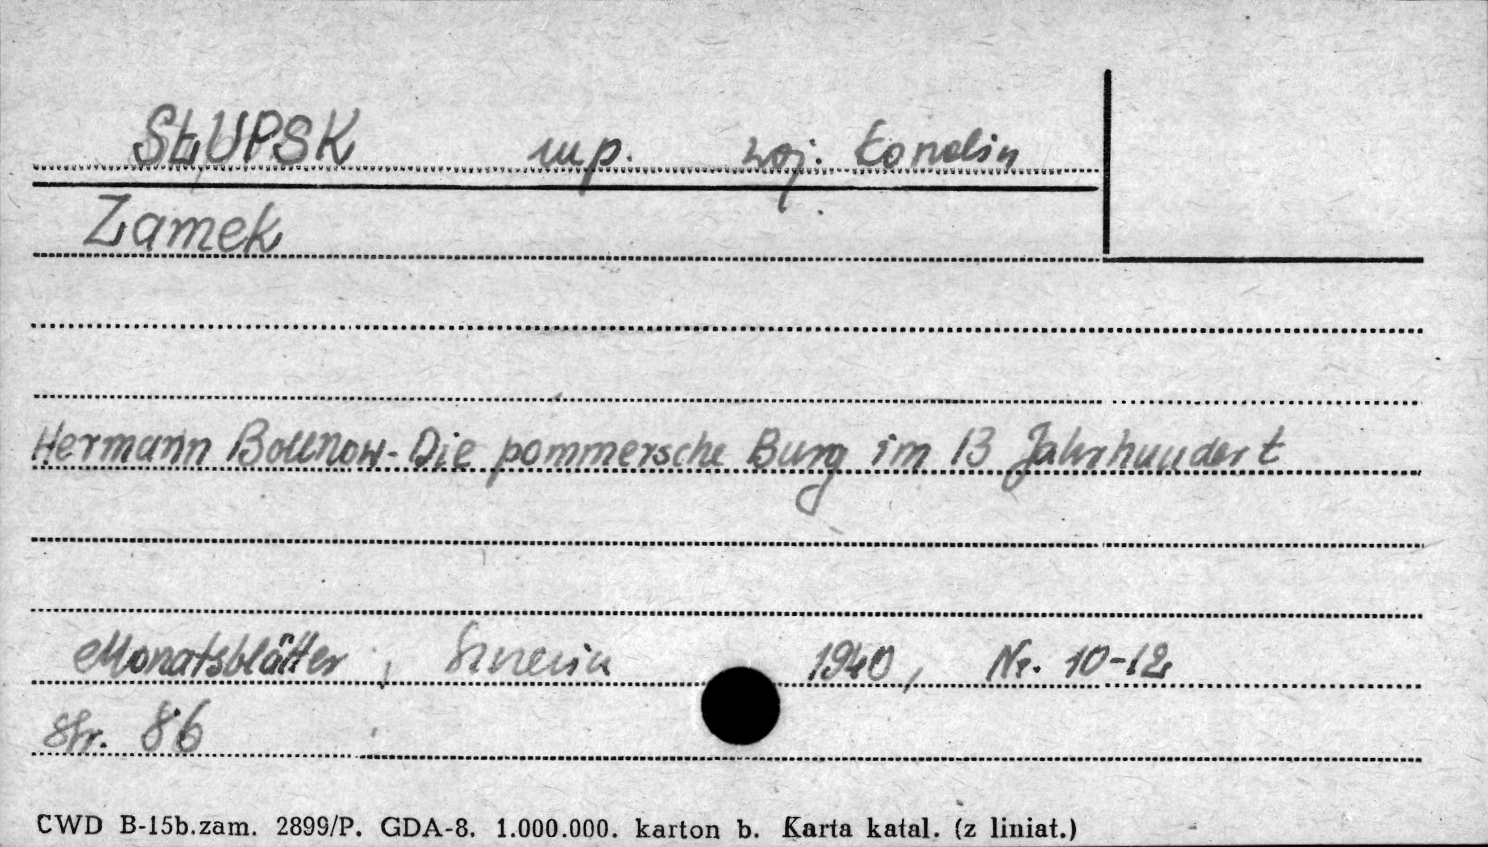 SŁUPSK mp. woj. Łondin
Zamek
Hermann Bollnow - Die pommersche Burg im 13 Jahrhundert
Monatsblätter, 1940, Nr. 10-12
Str. 86
CWD B-15b.zam. 2899/P. GDA-8. 1.000.000. karton b. Karta katal. (z liniat.)